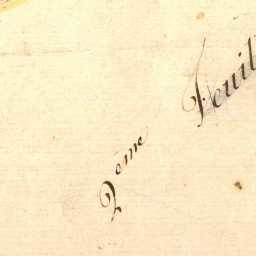 2eme Feuil